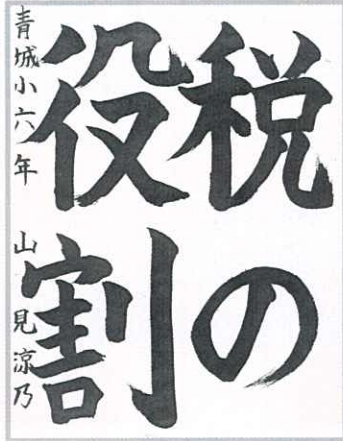 税の
役割
青城小六年 山見涼乃